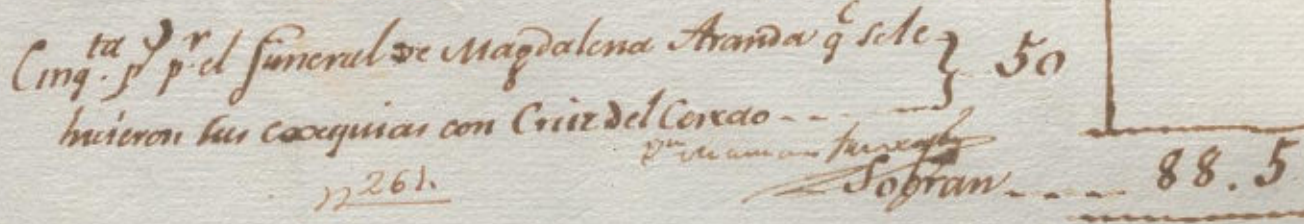 Cinq.ta p.s p.r el funeral de Magdalena Aranda q.e se le } 50
hicieron sus exequias con Cruz del Coxedo - - -
Sobran - - - 88.5
n 261.